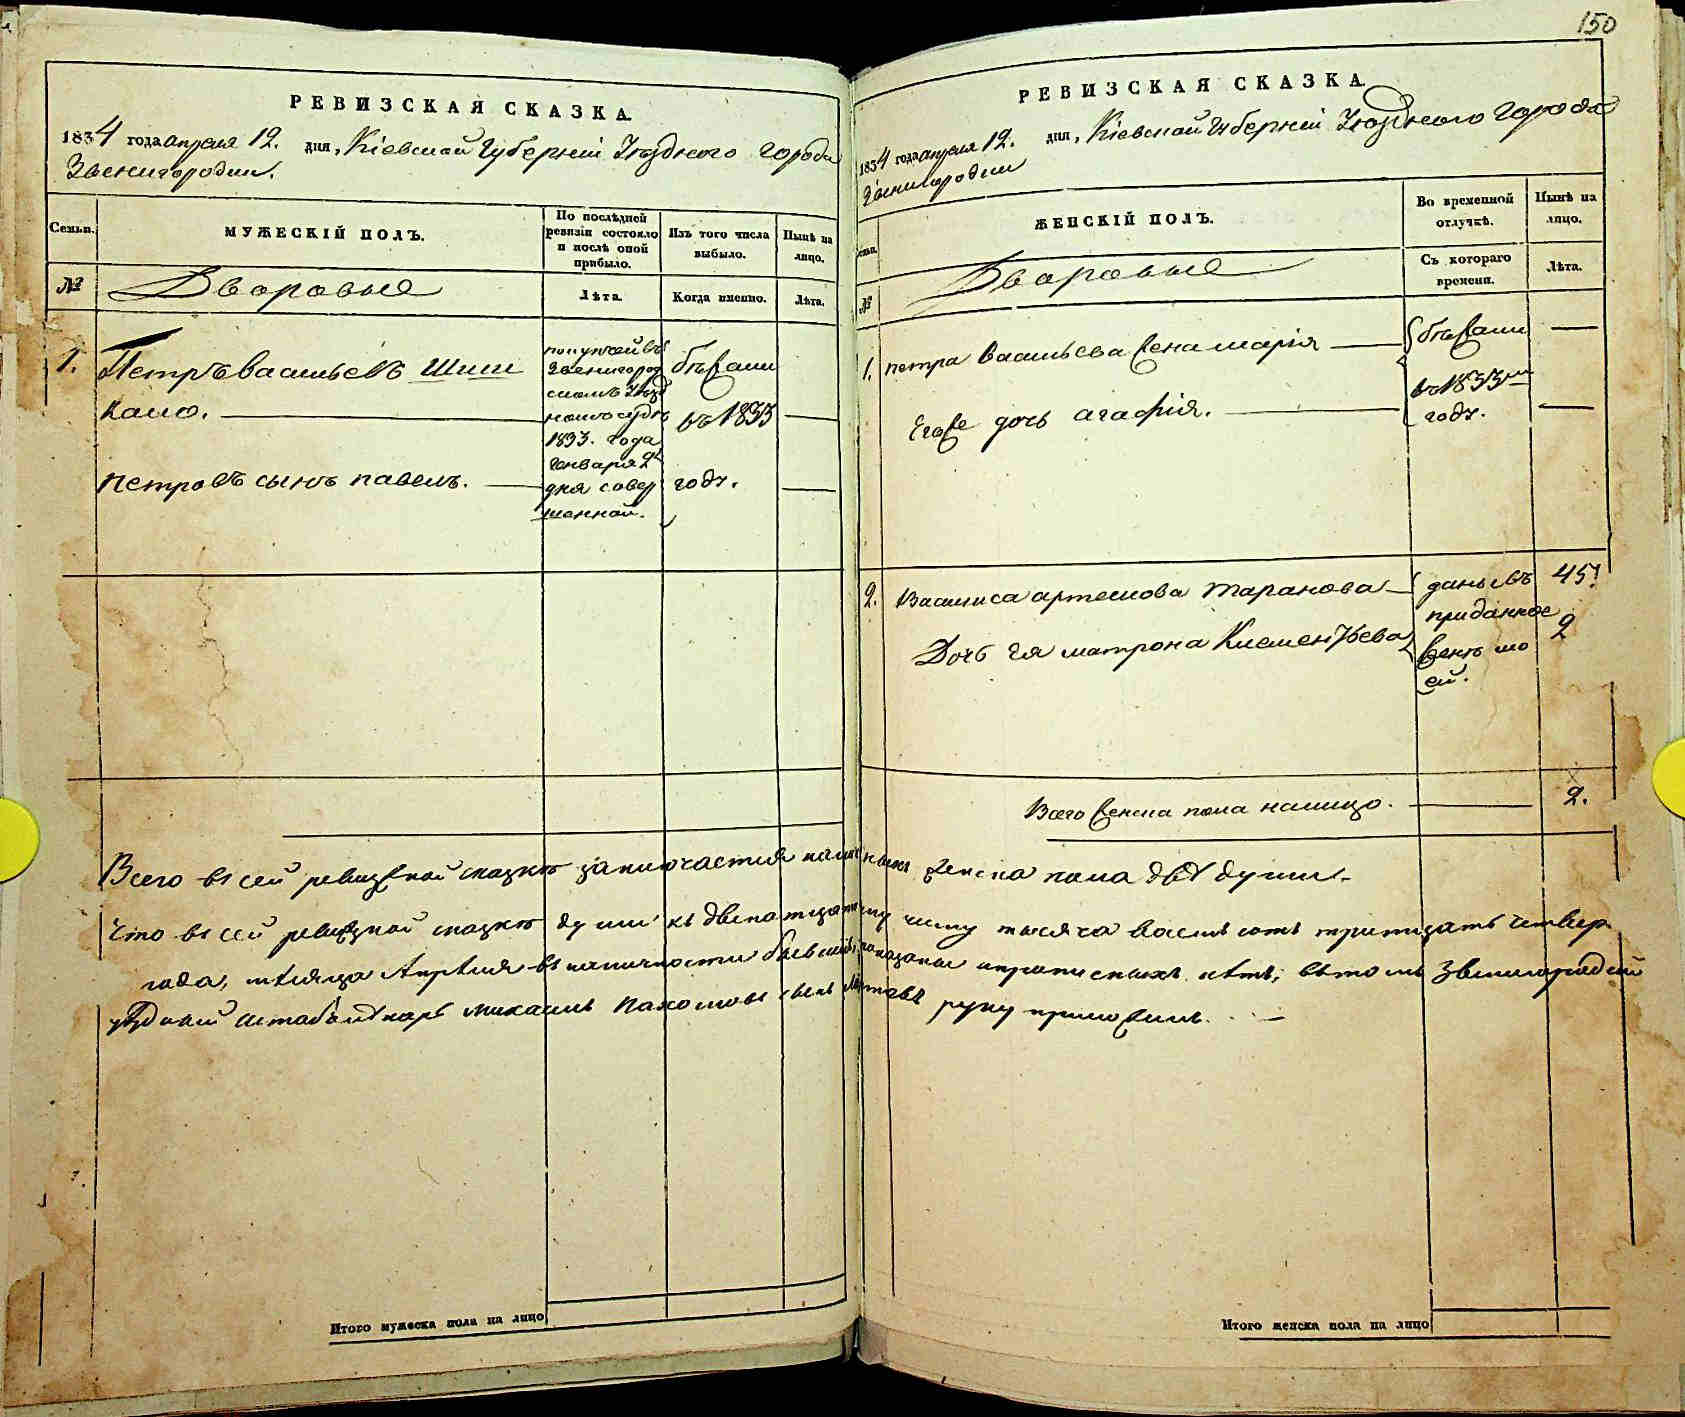 150
РЕВИЗСКАЯ СКАЗКА.
1834 года апреля 12. дня, Кіевской Губерніи Уѣзднаго города
Звенигородки.
Семьи.
МУЖЕСКІЙ ПОЛЪ.
По послѣдней
ревизіи состояло
и послѣ оной
прибыло.
Изъ того числа
выбыло.
Нынѣ на
лицо.
№
Дворовые
Лѣта.
Когда именно.
Лѣта.
1.
Петръ васильевъ Шиш
кало.
Петровъ сынъ павелъ.
покупкой въ
Звенигород
скомъ Уѣзд
номъ судѣ
1833. года
Генваря 2
дня совер
шенной.
бѣжали
въ 1833
годѣ.
Всего
Итого мужеска пола на лицо
РЕВИЗСКАЯ СКАЗКА.
1834 года апреля 12. дня, Кіевской Губерніи Уѣзднаго города
Звенигородки
Семьи.
ЖЕНСКІЙ ПОЛЪ.
Во временной
отлучкѣ.
Нынѣ на
лицо.
№
Дворовые
Съ котораго
времени.
Лѣта.
1.
петра васильева жена марія
Егоже дочь агафія.
бѣжали
въ 1833мъ
годѣ.
2.
Василиса артемова таранова
Дочь Ея матрона Клементьева
даны въ
приданное
женѣ мо
ей.
45
2
Всего женска пола налицо.
2.
Всего въ сей ревизкой сказкѣ заключается налицо женска пола двѣ души.
Что въ сей ревизкой сказкѣ души къ двенатцатому числу тысяча восемь сотъ тритцать четвер
года, мѣсяца Апрѣля въ наличности бывшіе, показаны и прописныхъ нѣтъ; въ томъ Звенигородскій
уѣздный Штаблѣкарь Михаилъ Пахомовъ сынъ руку приложилъ.
Итого женска пола на лицо